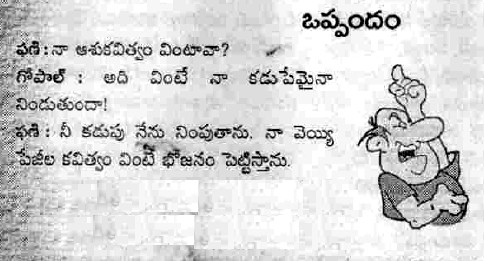 ఒప్పందం
ఫణి : నా ఆశుకవిత్వం వింటావా?
గోపాల్ : అది వింటే నా కడుపేమైనా
నిండుతుందా!
ఫణి : నీ కడుపు నేను నింపుతాను. నా వెయ్యి
పేజీల కవిత్వం వింటే భోజనం పెట్టిస్తాను.